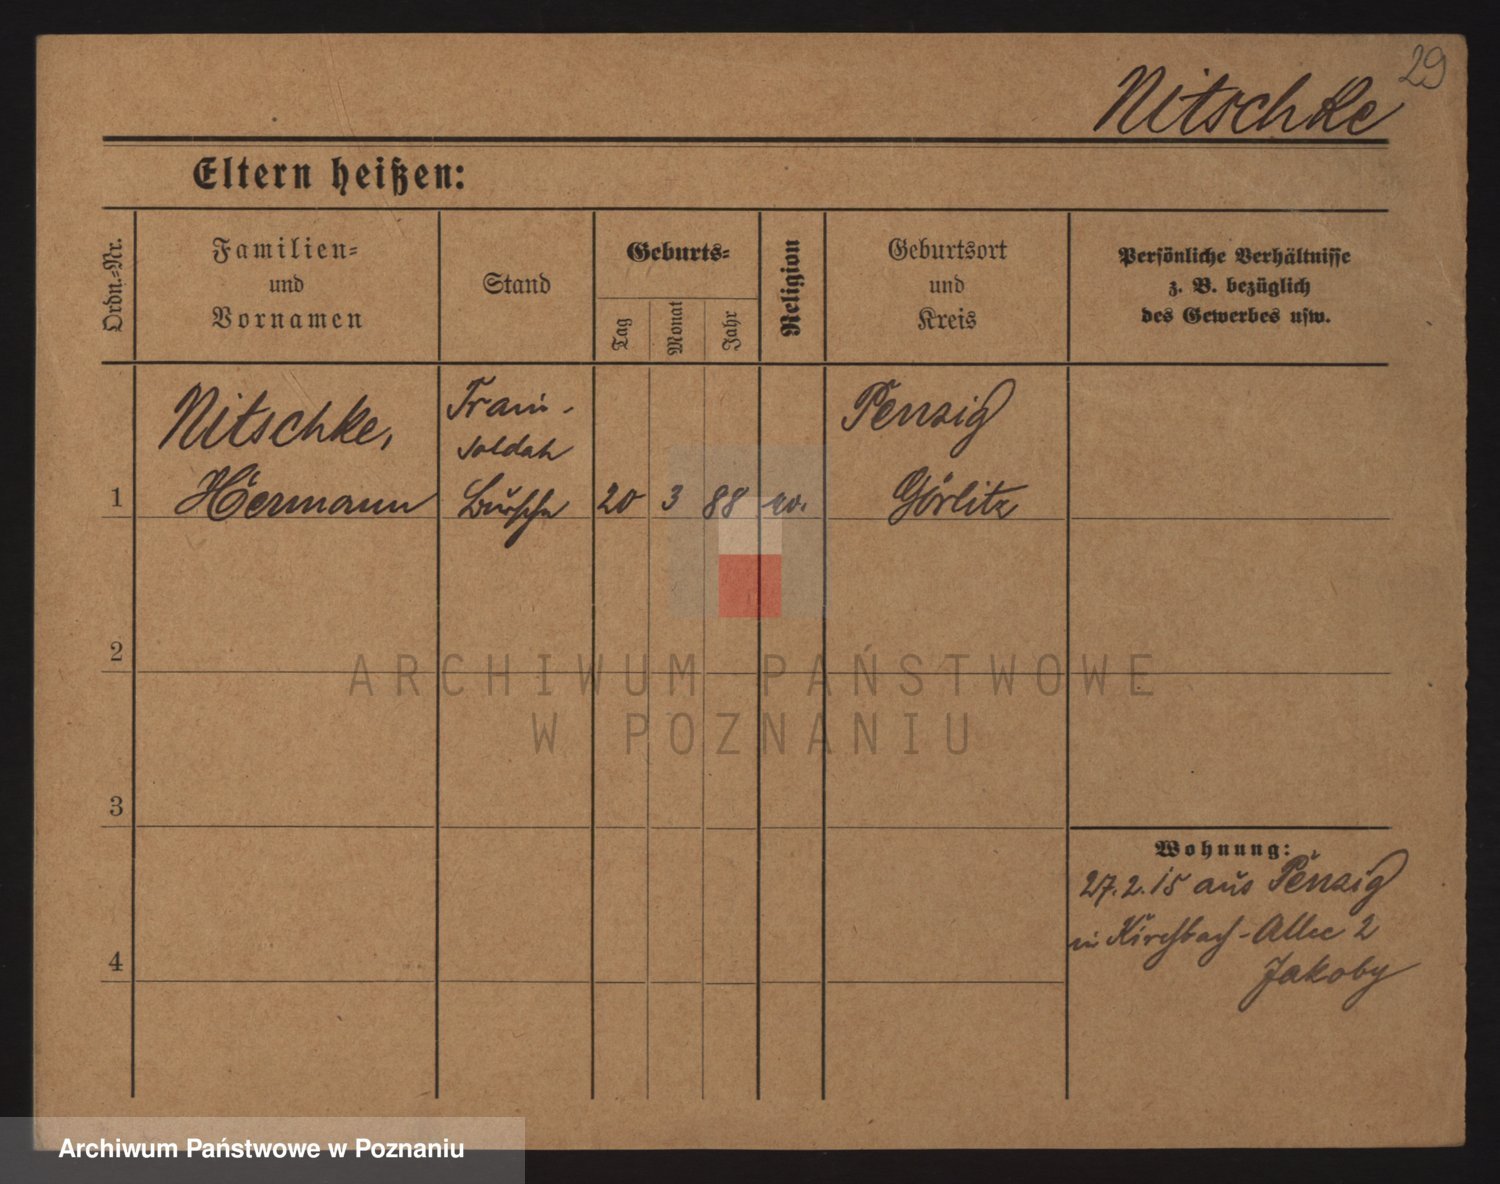 29
Nitschke
Eltern heißen:
Ordn.-Nr.
Familien-
und
Vornamen
Stand
Geburts-
Tag
Monat
Jahr
Religion
Geburtsort
und
Kreis
Persönliche Verhältnisse
z. B. bezüglich
des Gewerbes usw.
1
Nitschke,
Hermann
Train-
soldat
Bursche
20
3
88
ev.
Penzig
Görlitz
2
3
4
Wohnung:
27.2.15 aus Penzig
in Kirchbach-Allee 2
Jakoby
ARCHIWUM PAŃSTWOWE
W POZNANIU
Archiwum Państwowe w Poznaniu